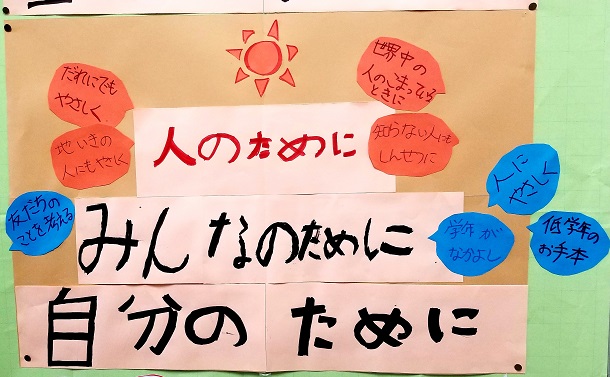 だれにでも
やさしく
世界中の
人のこまっている
ときに
地いきの
人にもやさしく
人のために
知らない人にも
しんせつに
友だちの
ことを考える
みんなのために
学年が
なかよし
人に
やさしく
低学年の
お手本
自分のために